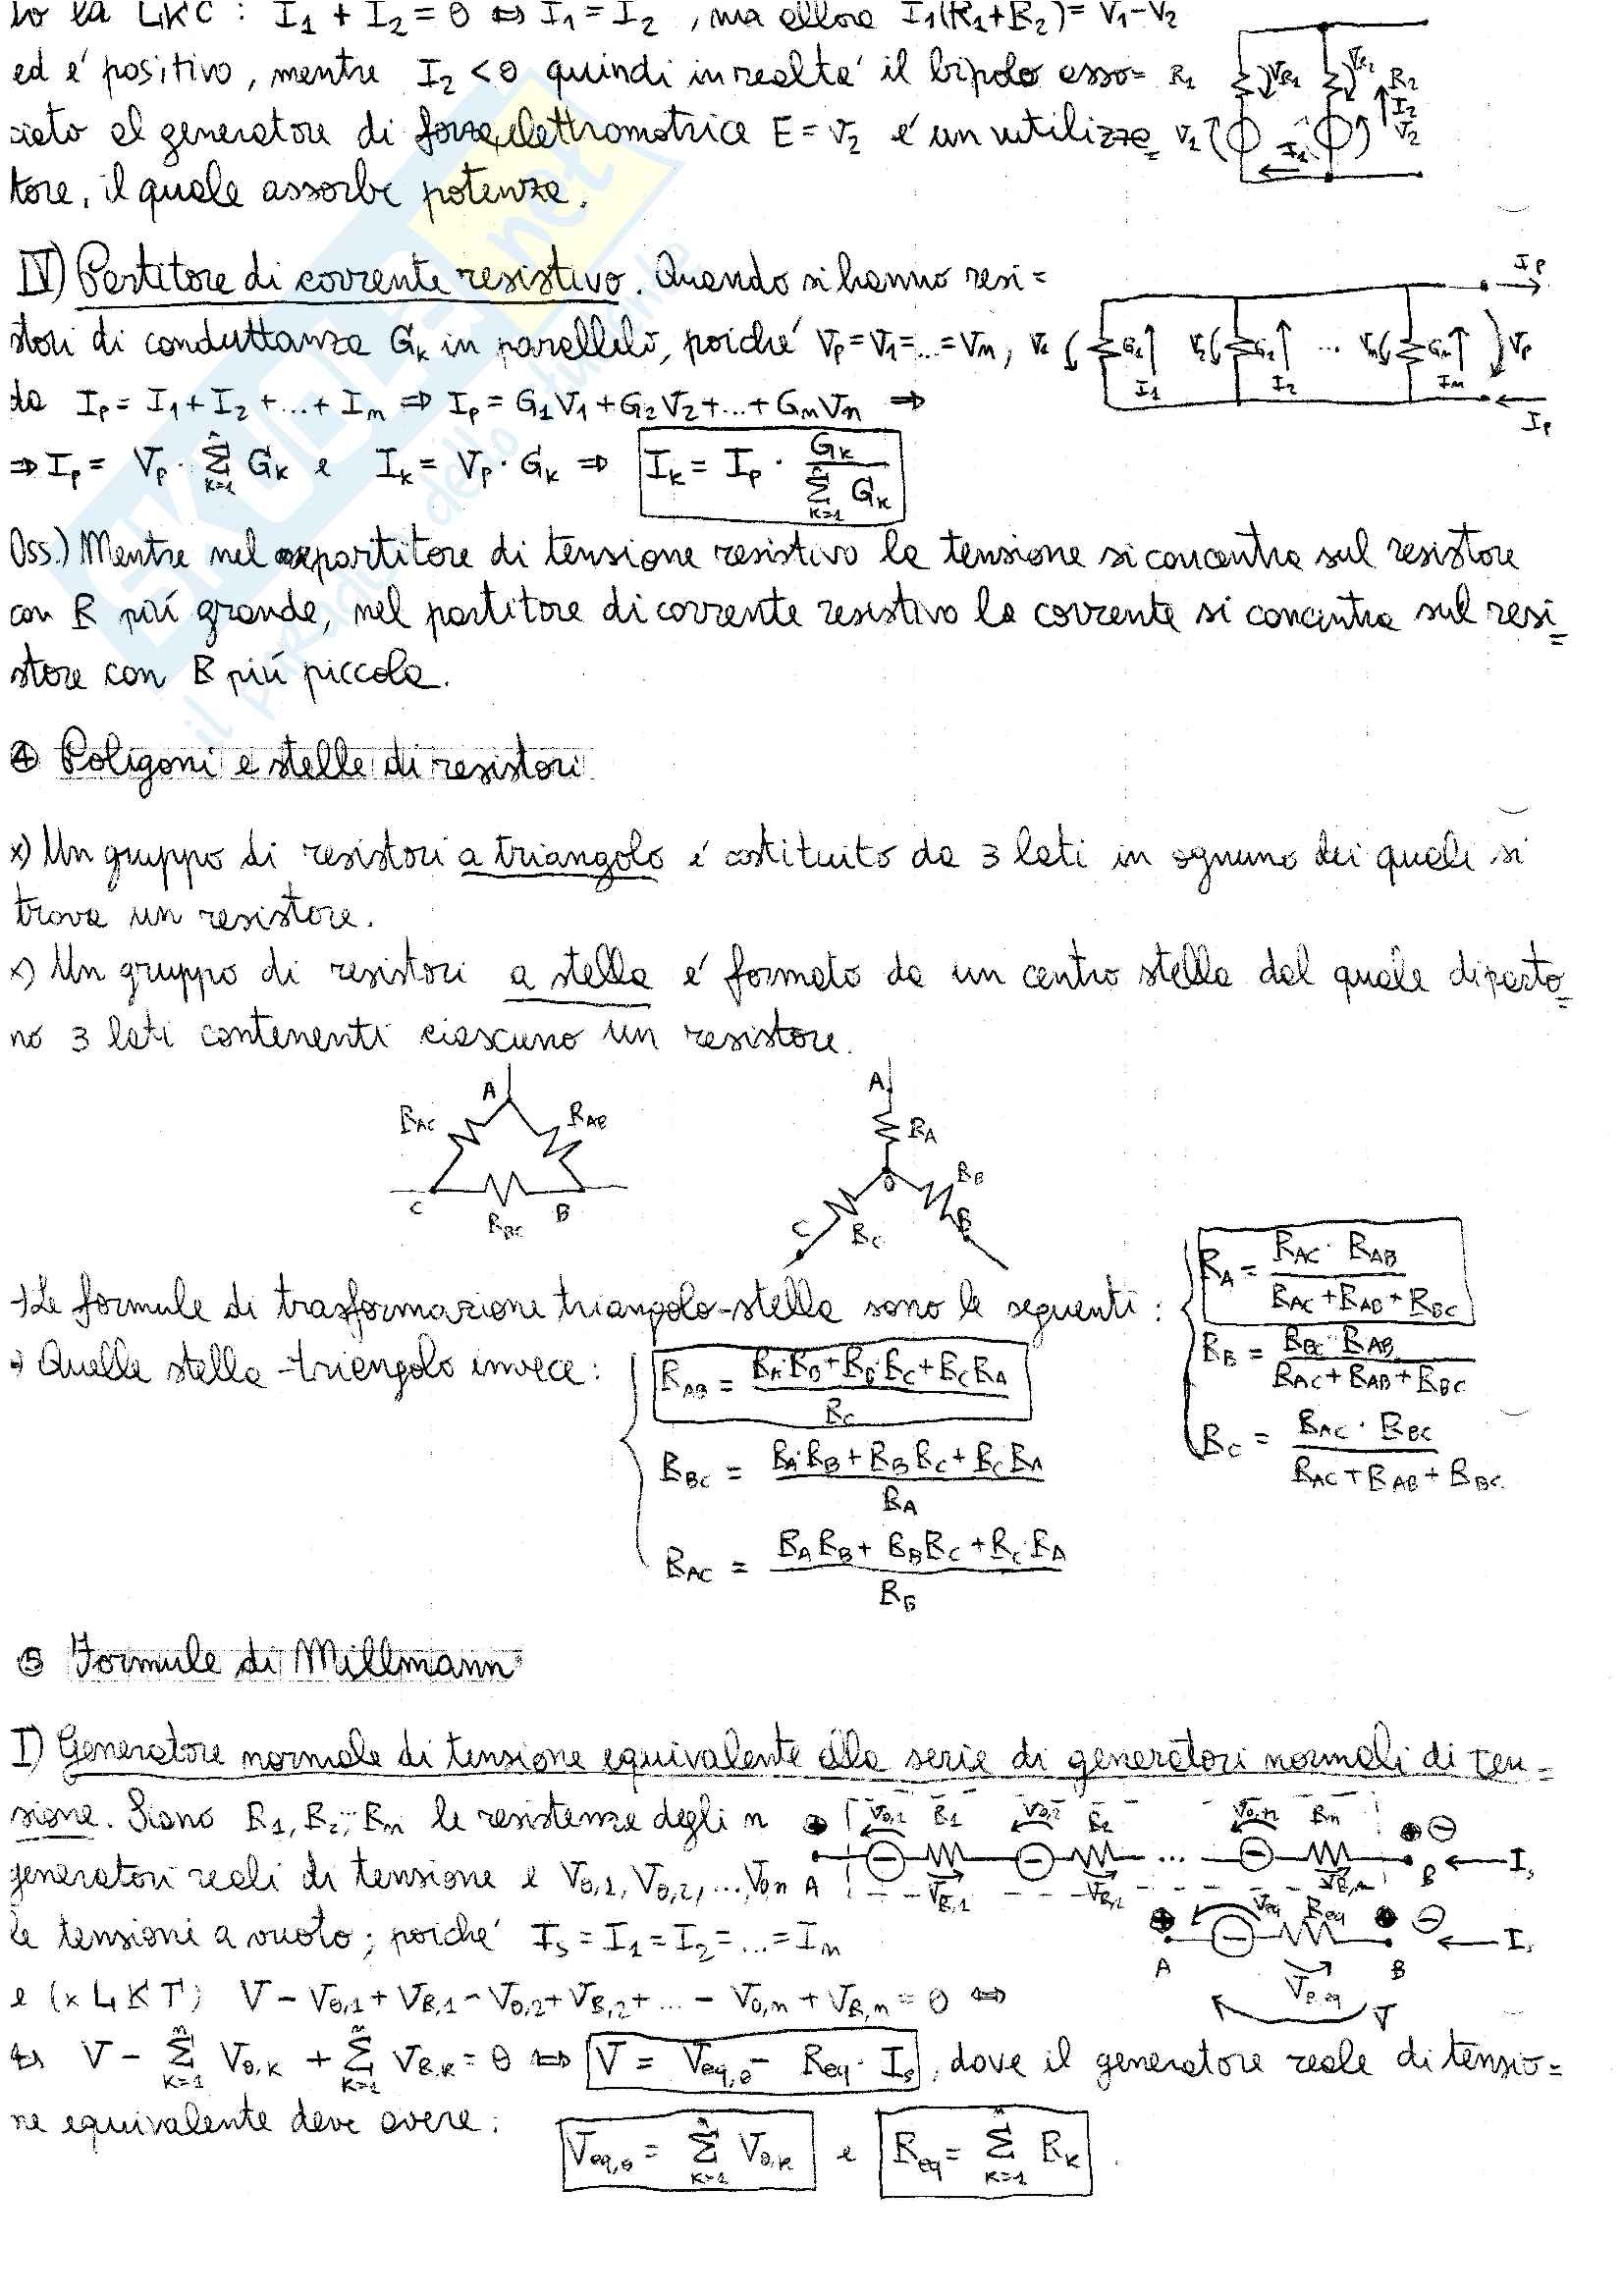 la LKC : I₁ + I₂ = 0 ⇔ I₁ = I₂ , ma allora I₁(R₁+R₂) = V₁-V₂
ed e' positivo, mentre I₂ < 0 quindi in realta' il bipolo asso=
ciato al generatore di forza elettromotrice E = V₂ e' un utilizza=
tore, il quale assorbe potenza.
R₁ V_R1 V_R2 R₂
V₁ I₁ I₂ V₂
IV) Partitore di corrente resistivo. Quando si hanno resi=
stori di conduttanza G_K in parallelo, poiche' V_P = V₁ = ... = V_m,
da I_P = I₁ + I₂ + ... + I_m ⇒ I_P = G₁V₁ + G₂V₂ + ... + G_mV_n ⇒
⇒ I_P = V_P · Σ_{K=1}^{n} G_K e I_K = V_P · G_K ⇒ I_K = I_P · G_K / Σ_{K=1}^{n} G_K
I_P
G₁ I₁ G₂ I₂ ... G_m I_m V_P
I_P
Oss.) Mentre nel partitore di tensione resistivo la tensione si concentra sul resistore
con R piú grande, nel partitore di corrente resistivo la corrente si concentra sul resi=
store con R piú piccola.
④ Poligoni e stelle di resistori
x) Un gruppo di resistori a triangolo e' costituito da 3 lati in ognuno dei quali si
trova un resistore.
x) Un gruppo di resistori a stella e' formato da un centro stella dal quale diparto=
no 3 lati contenenti ciascuno un resistore.
A R_AC R_AB C R_BC B
A R_A O R_B B C R_C
→ Le formule di trasformazione triangolo-stella sono le seguenti :
R_A = R_AC · R_AB / R_AC + R_AB + R_BC
R_B = R_BC · R_AB / R_AC + R_AB + R_BC
R_C = R_AC · R_BC / R_AC + R_AB + R_BC
→ Quelle stella-triangolo invece :
R_AB = R_A·R_B + R_B·R_C + R_C R_A / R_C
R_BC = R_A·R_B + R_B R_C + R_C R_A / R_A
R_AC = R_A R_B + R_B R_C + R_C·R_A / R_B
⑤ Formule di Millmann
I) Generatore normale di tensione equivalente alla serie di generatori normali di ten=
sione. Siano R₁, R₂, ..., R_n le resistenze degli n
generatori reali di tensione e V₀,₁, V₀,₂, ..., V₀,n
le tensioni a vuoto; poiche' I_S = I₁ = I₂ = ... = I_n
e (x LKT) V - V₀,₁ + V_R,₁ - V₀,₂ + V_R,₂ + ... - V₀,n + V_R,n = 0 ⇔
⇔ V - Σ_{K=1}^{n} V₀,K + Σ_{K=1}^{n} V_R,K = 0 ⇔ V = V_eq,0 - R_eq · I_S , dove il generatore reale di tensio=
ne equivalente deve avere :
V_eq,0 = Σ_{K=1}^{n} V₀,K e R_eq = Σ_{K=1}^{n} R_K .
V₀,₁ R₁ V₀,₂ R₂ V₀,n R_n
A V_R,₁ V_R,₂ ... V_R,n B I_S
V_eq R_eq
A B I_S
V_R,eq
V